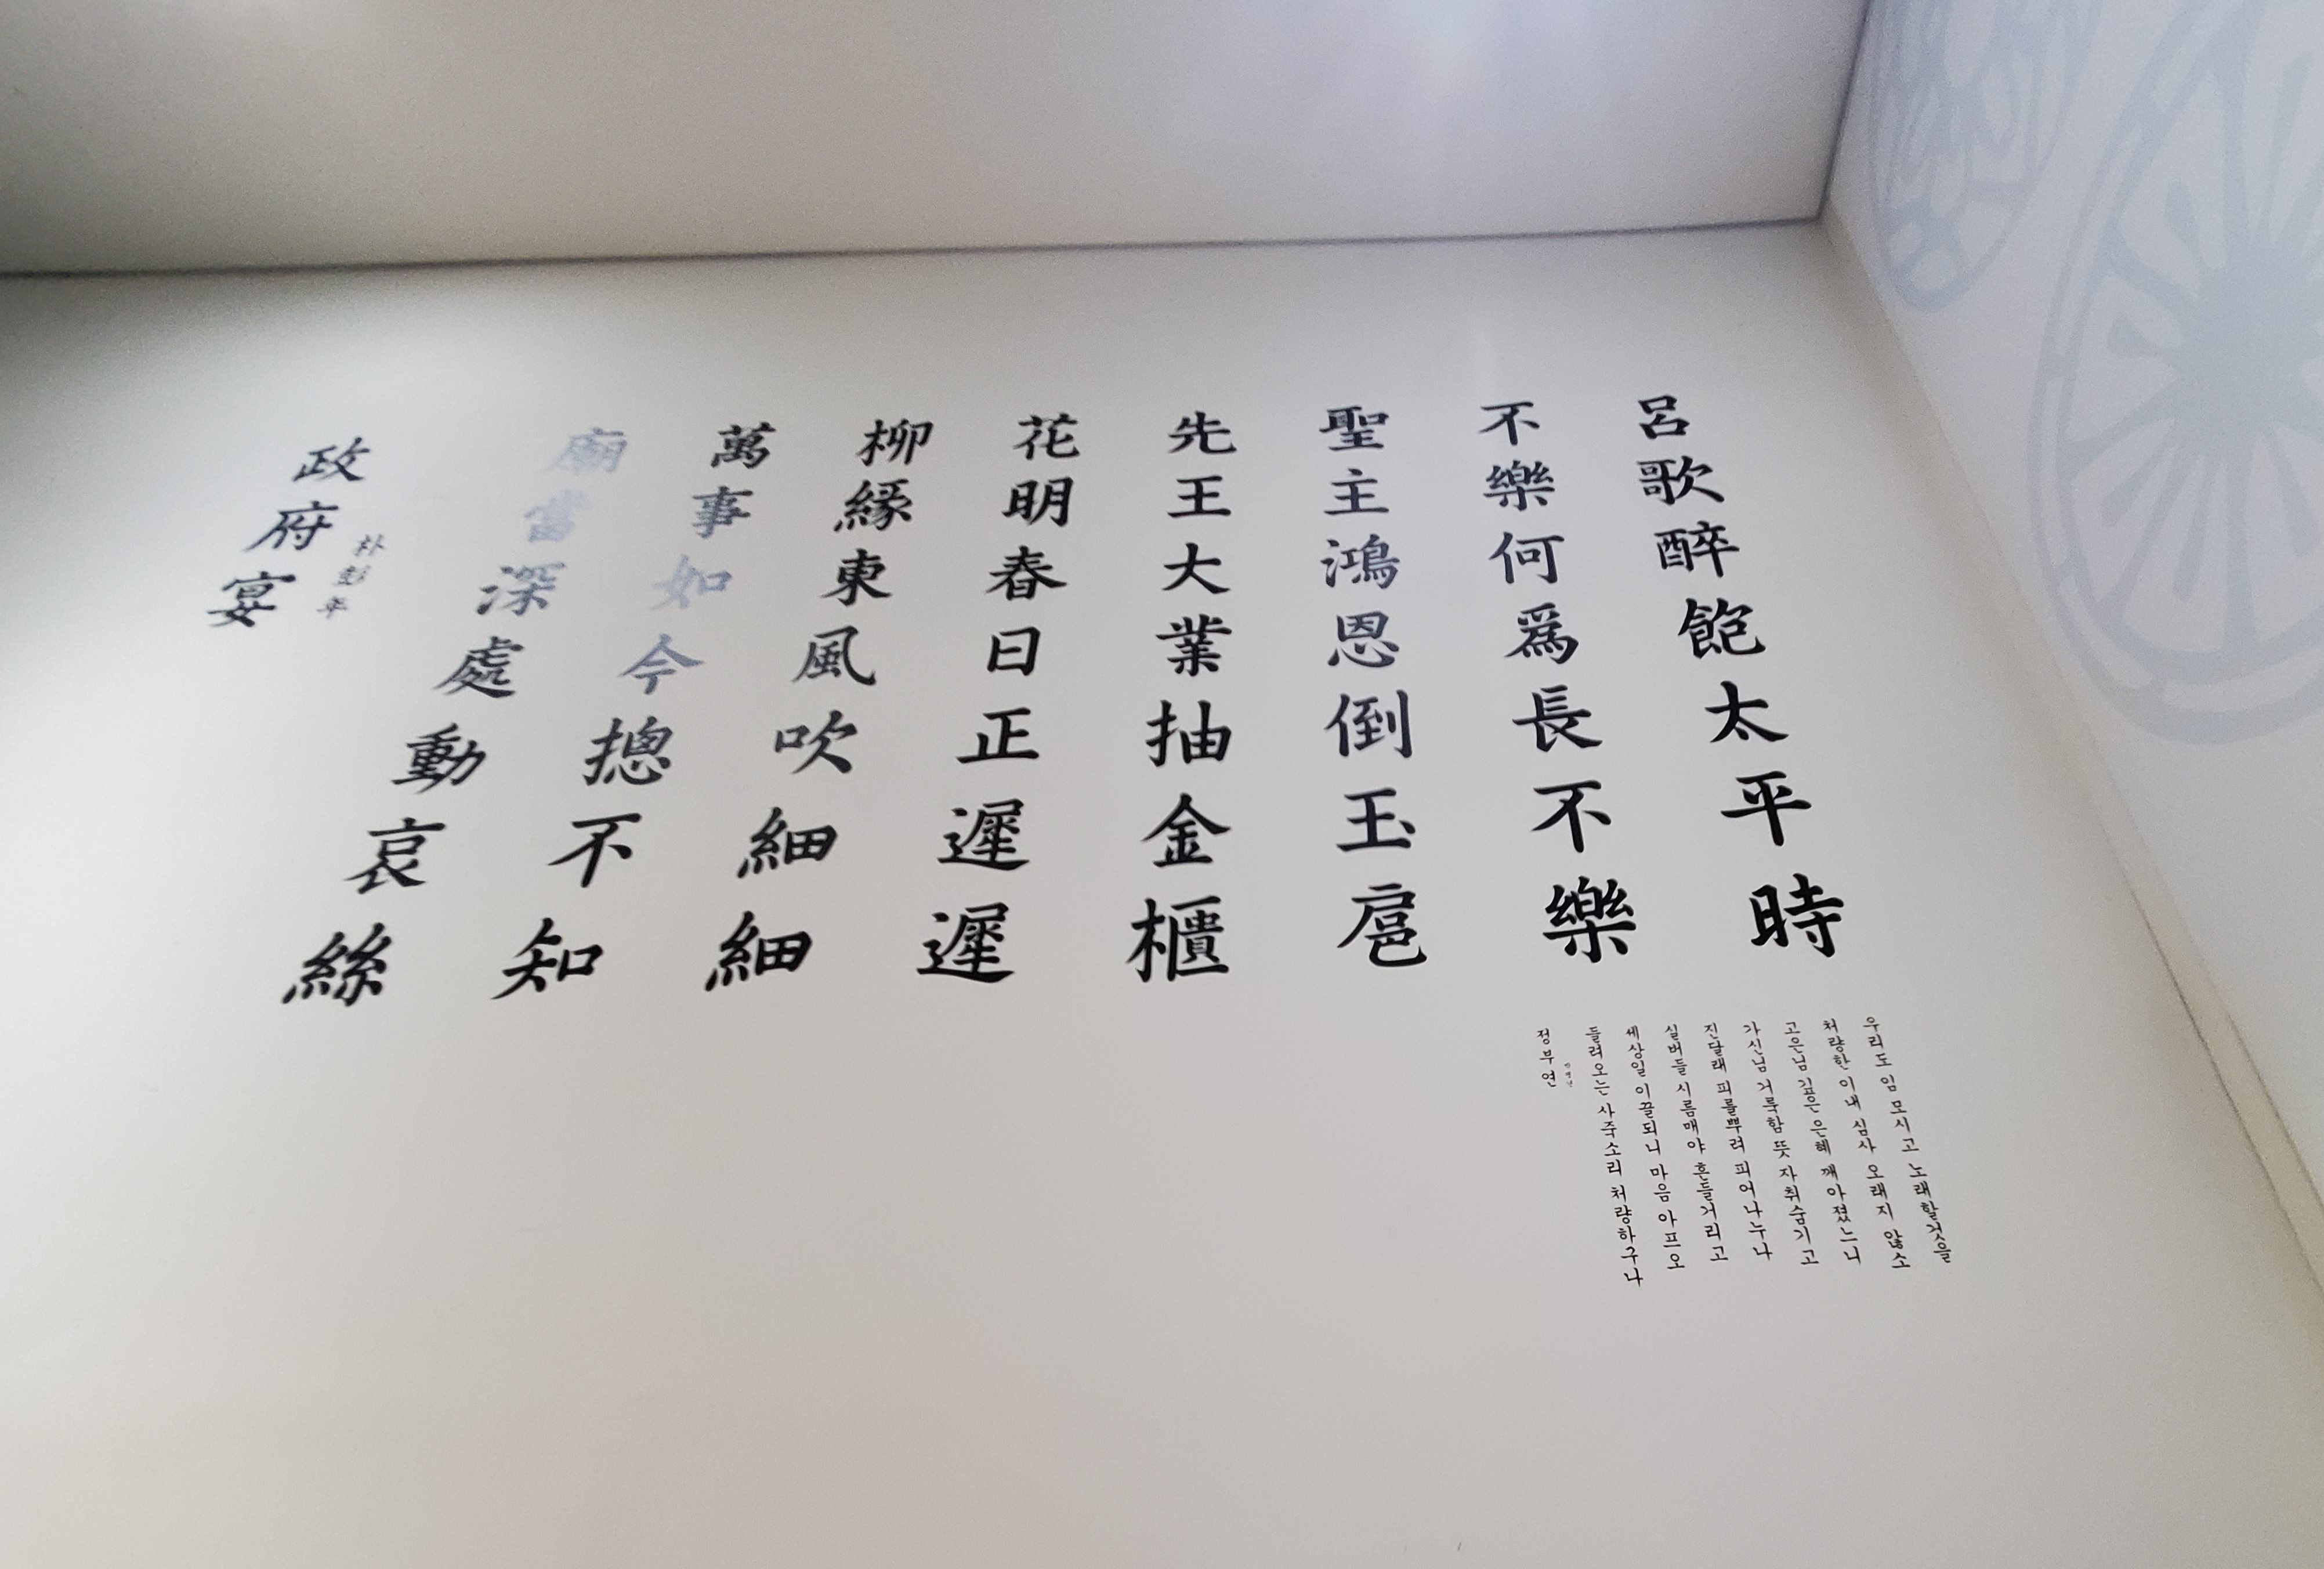 政府宴
朴彭年
廟當深處動哀絲
萬事如今摠不知
柳緣東風吹細細
花明春日正遲遲
先王大業抽金櫃
聖主鴻恩倒玉扈
不樂何爲長不樂
呂歌醉飽太平時
정부연
들려오는 사주소리 처량하구나
세상일 이꼴되니 마음 아프오
실버들 시름매야 흔들거리고
진달래 피를뿌려 피어나누나
가신님 거룩함 뜻 자취숨기고
고은님 깊은 은혜 깨아졌느니
처량한 이내 심사 오래지 않소
우리도 임 모시고 노래할것을